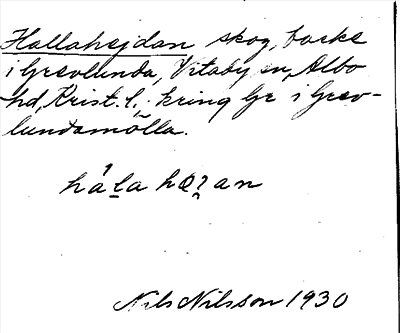 Hallahejdan skog, backe
i Grevlunda, Vitaby sn, Albo
hd, Krist. l., kring Gr i Grev-
lundamölla.
hála
Nils Nilsson 1930